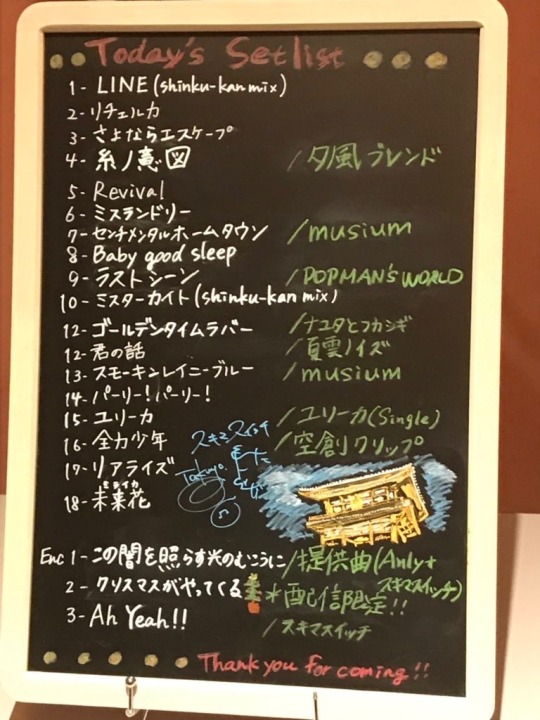 Today's Setlist
1- LINE (shinku-kan mix)
2- リチェルカ
3- さよならエスケープ
4- 糸ノ意図 /夕風ブレンド
5- Revival
6- ミスランドリー
7- センチメンタルホームタウン /musium
8- Baby good sleep
9- ラストシーン /POPMAN'S WORLD
10- ミスターカイト(shinku-kan mix)
12- ゴールデンタイムラバー /ナユタとフカシギ
12- 君の話 /夏雲ノイズ
13- スモーキンレイニーブルー /musium
14- パーリー!パーリー!
15- ユリーカ /ユリーカ(Single)
16- 全力少年 /空創クリップ
スキマスイッチ
17- リアライズ
Takuya.
ミライカ
18- 未来花
Enc 1- この闇を照らす光のむこうに /提供曲(Anly+スキマスイッチ)
2- クリスマスがやってくる *配信限定!!
3- Ah Yeah!! /スキマスイッチ
Thank you for coming!!